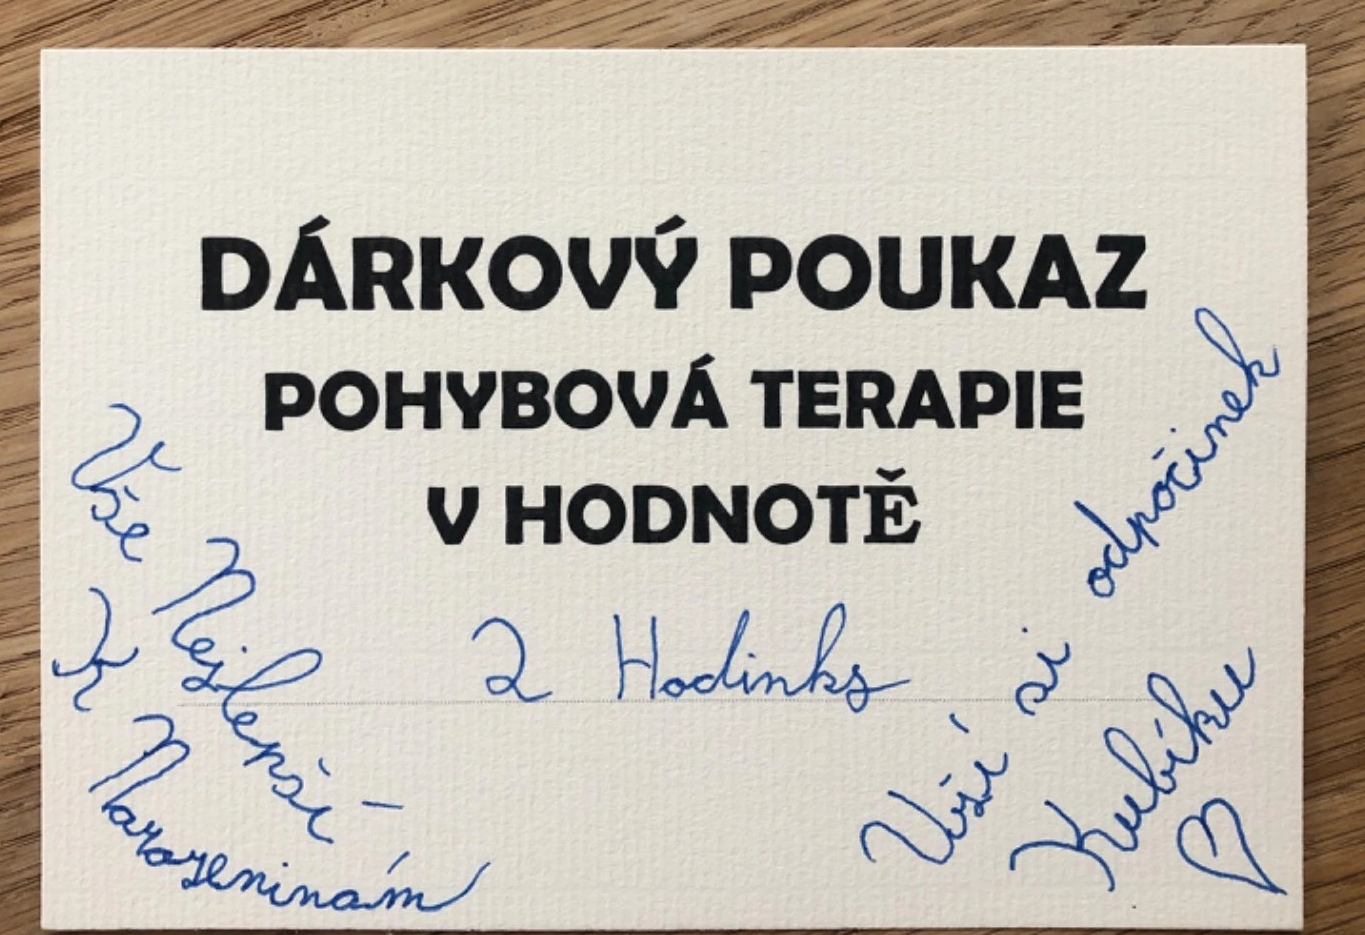 DÁRKOVÝ POUKAZ
POHYBOVÁ TERAPIE
V HODNOTĚ
2 Hodinky
Vše Nejlepší
K Narozeninám
Užij si odpočinek
Kubíku ♡